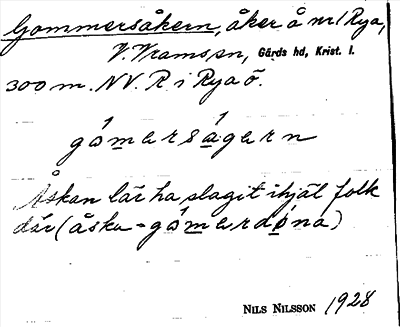 Gommersåkern, åker å nr 1 Rya,
V. Vrams sn, Gärds hd, Krist. l.
300 m. NV. R i Rya ö.
gómerságern
Åskan lär ha slagit ihjäl folk
där (åska = gómerdǿna)
NILS NILSSON 1928